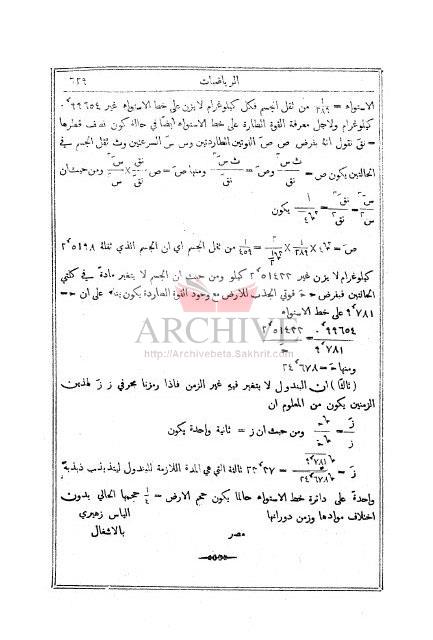 ٦٣٩ الرياضيات
الاستواء = ١/٢٨٩ من ثقل الجسم فكل كيلوغرام لا يزن على خط الاستواء غير ٩٩٦٥٤٫٠
كيلوغرام ولاجل معرفة القوة الطاردة على خط الاستواء ايضًا في حالة كون نصف قطرها
= نق نقول انهُ بفرض ص صَ القوتين الطاردتين وس سَ السرعتين وث ثقل الجسم في
الحالتين يكون ص = ث س٢/نق وصَ = ث سَ٢/نقَ ومنها صَ = ص نق/نقَ × سَ٢/س٢ ومن حيث ان
سَ٢/س٢ = نقَ٢/نق٢ = يكون
صَ = × ١/٢٨٩ × = ١/٤٥٩ من ثقل الجسم اي ان الجسم الذي ثقلهُ ٢٫٥١٩٨
كيلوغرام لا يزن غير ٢٫٥١٤٣٣ كيلو ومن حيث ان الجسم لا يتغير مادةً في كلتي
الحالتين فبفرض حـ حـَ قوتي الجذب للارض مع وجود القوة الطاردة يكون بناء على ان حـ =
٩٫٧٨١ على خط الاستواء
٩٩٦٥٤٫٠ / ٩٫٧٨١ = ٢٫٥١٤٣٣ / حـَ
ومنها حـَ = ٢٤٫٦٧٨
(ثالثًا) ان البندول لا يتغير فيهِ غير الزمن فاذا رمزنا بحرفي ز زَ لهذين
الزمنين يكون من المعلوم ان
زَ/ز = √حـ/√حـَ ومن حيث ان ز = ثانية واحدة يكون
زَ = √٩٫٧٨١/√٢٤٫٦٧٨ = ثالثة التي هي المدة اللازمة للبندول ليتذبذب ذبذبة
واحدة على دائرة خط الاستواء حالما يكون حجم الارض = ١/٤ حجمها الحالي بدون
اختلاف موادها وزمن دورانها الياس زهيري
مصر بالاشغال
ARCHIVE
http://Archivebeta.Sakhrit.com